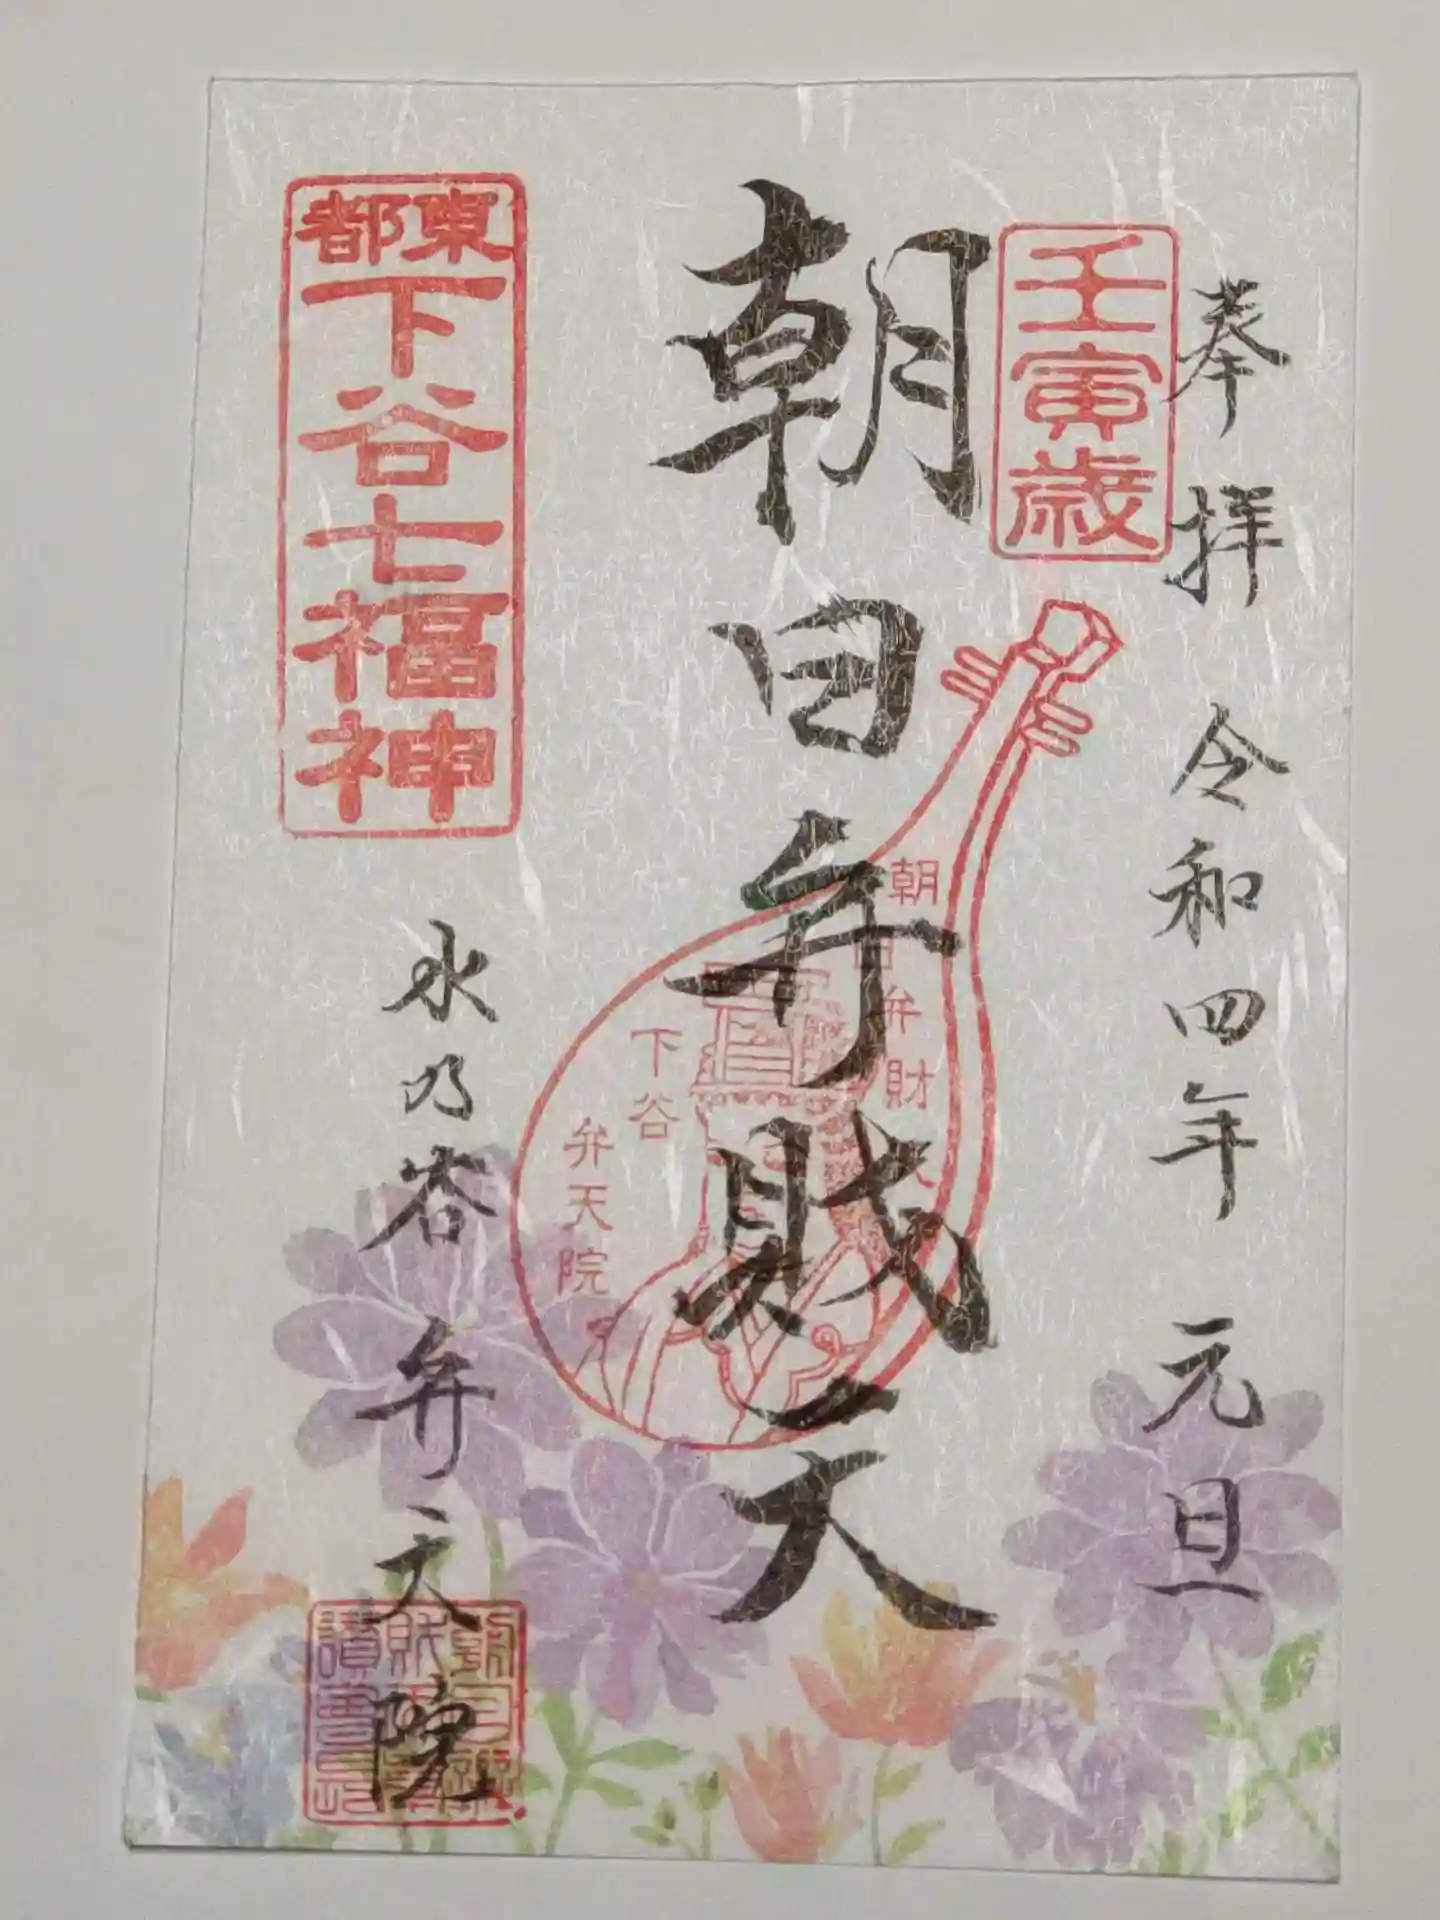 奉拝 令和四年 元旦
壬寅歳
朝日弁財天
朝日弁財天
下谷
弁天院
東都
下谷七福神
水乃谷 弁天院